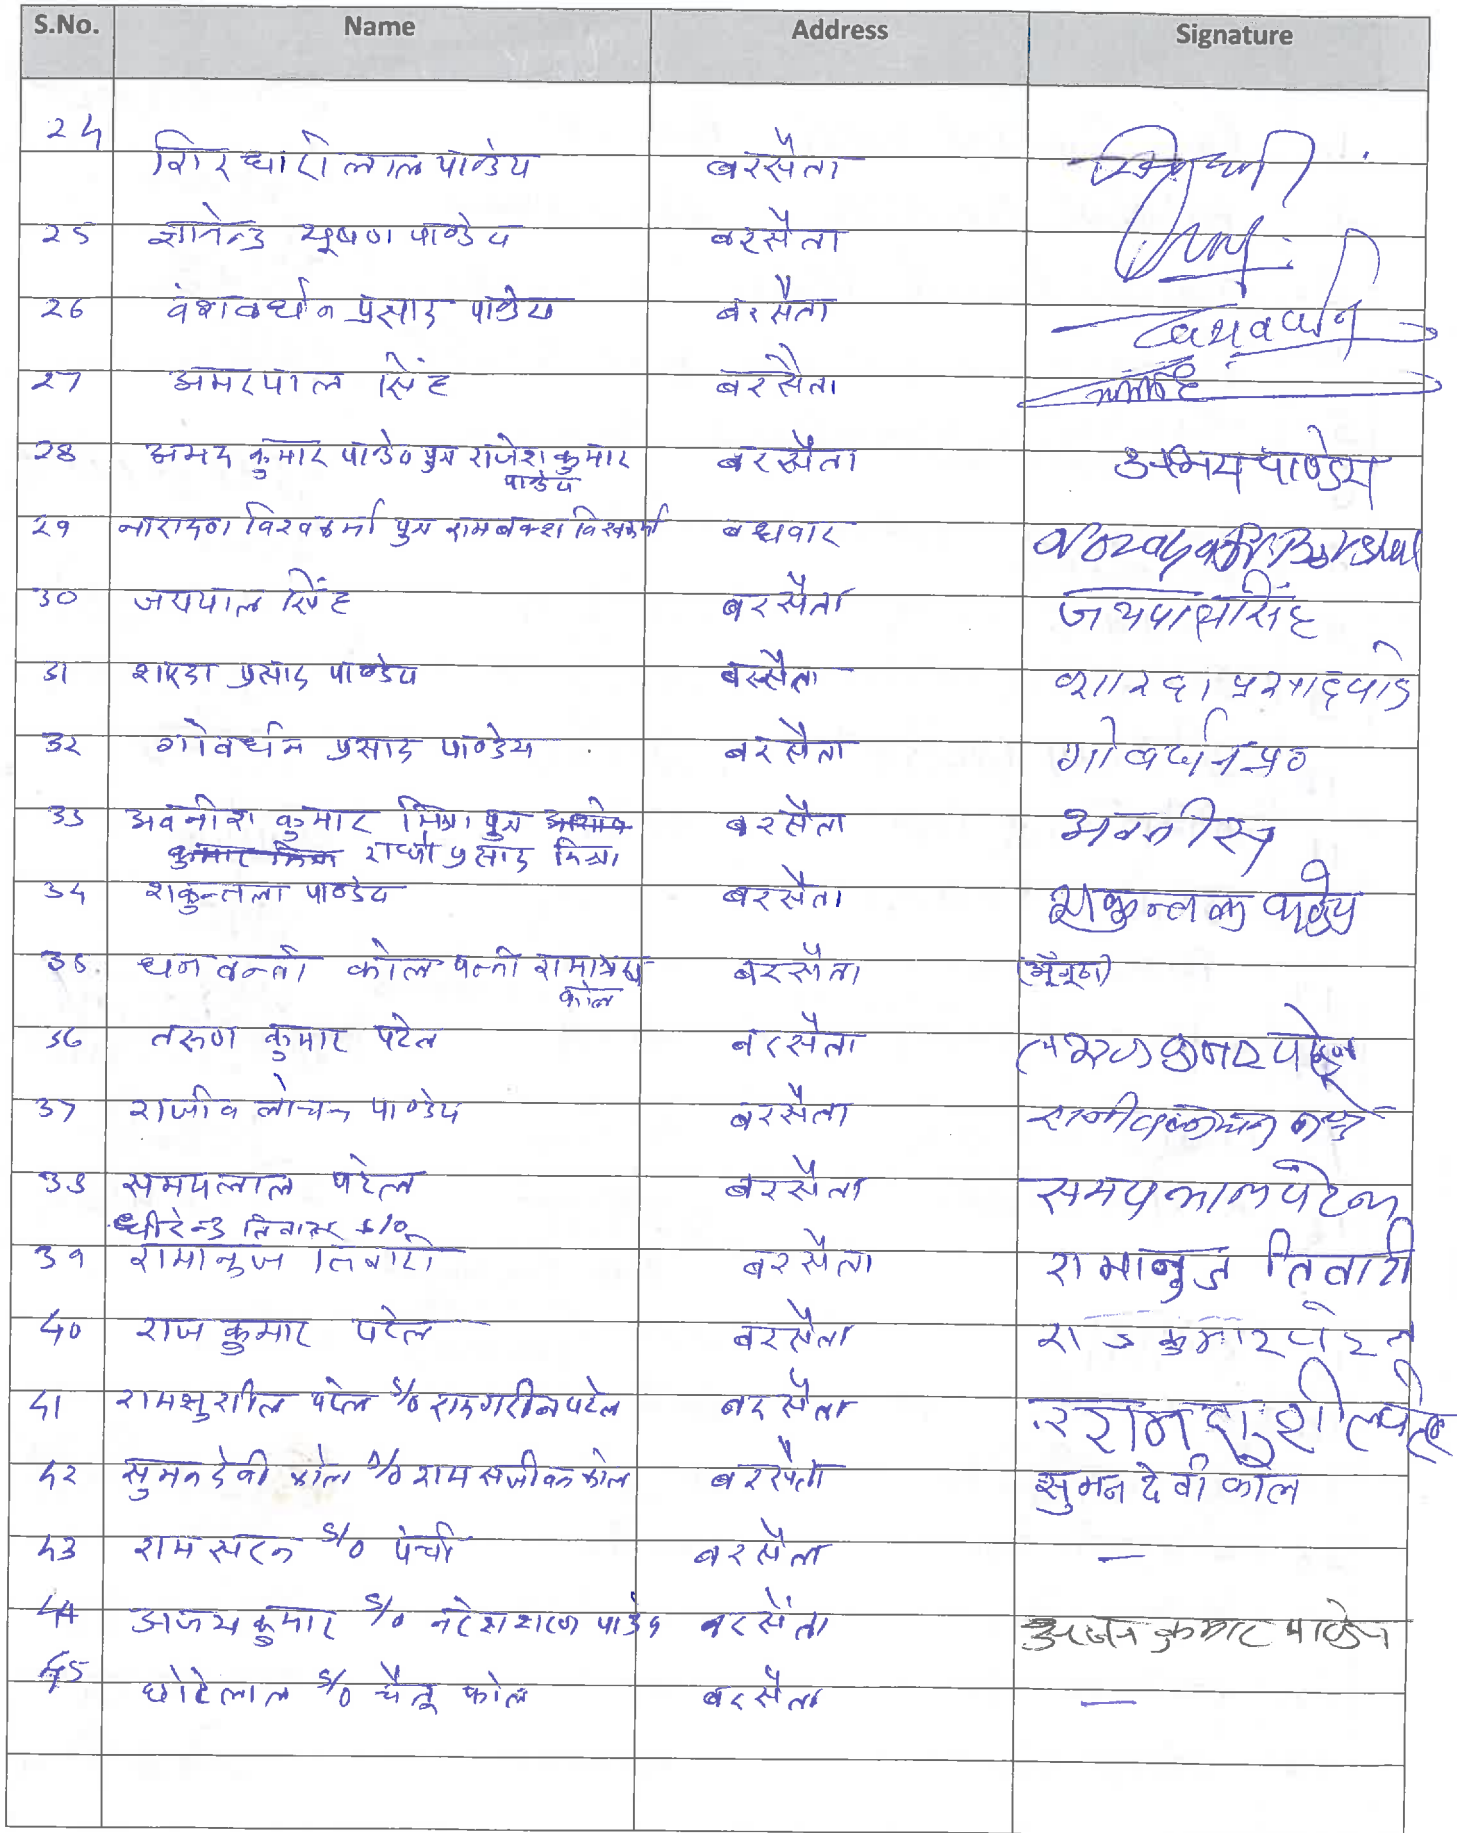 S.No. Name Address Signature
24 गिरधारी लाल पाण्डेय बरसैता
25 ज्ञानेन्द्र भूषण पाण्डेय बरसैता
26 वंशवर्धन प्रसाद पाण्डेय बरसैता
27 अमरपाल सिंह बरसैता
28 अभय कुमार पाण्डेय पुत्र राजेश कुमार बरसैता अभय पाण्डेय
पाण्डेय
29 नारायण विश्वकर्मा पुत्र रामबक्श विश्वकर्मा बधवार
30 जयपाल सिंह बरसैता जयपाल सिंह
31 शारदा प्रसाद पाण्डेय बरसैता शारदा प्रसाद पांडे
32 गोवर्धन प्रसाद पाण्डेय बरसैता गोवर्धन प्र०
33 अवनीश कुमार मिश्रा पुत्र बरसैता अवनीस
प्रसाद मिश्रा
34 शकुन्तला पाण्डेय बरसैता शकुन्तला पाण्डेय
35 धनवन्ती कोल पत्नी बरसैता
कोल
36 तरुण कुमार पटेल बरसैता तरुण कुमार पटेल
37 राजीव लोचन पाण्डेय बरसैता राजीव लोचन पाण्डे
38 समयलाल पटेल बरसैता समयलाल पटेल
धीरेन्द्र तिवारी s/o
39 रामानुज तिवारी बरसैता रामानुज तिवारी
40 राज कुमार पटेल बरसैता राजकुमार पटेल
41 रामसुशील पटेल s/o रामगरीब पटेल बरसैता रामसुशील पटेल
42 सुमन देवी कोल w/o राम सजीवन कोल बरसैता सुमन देवी कोल
43 राम सरन s/o बरसैता —
44 अजय कुमार s/o नरेश शरण पाण्डेय बरसैता अजय कुमार पाण्डेय
45 छोटेलाल s/o चैतू कोल बरसैता —